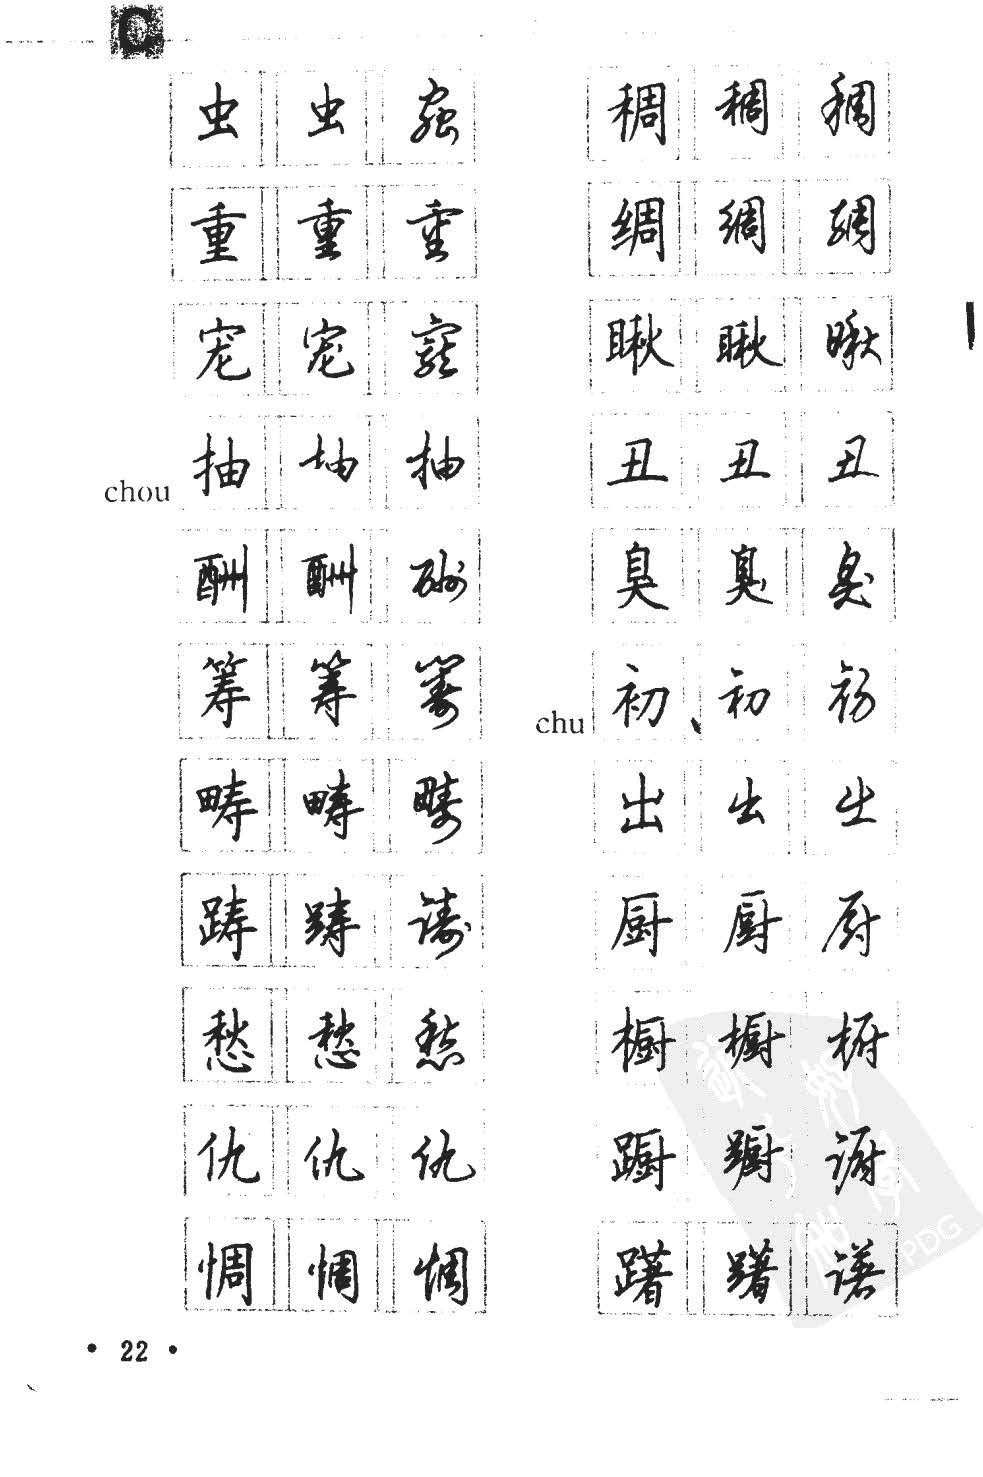 C
虫 虫 蟲
重 重 重
宠 宠 寵
chou 抽 抽 抽
酬 酬 酬
筹 筹 籌
畴 畴 疇
踌 踌 躊
愁 愁 愁
仇 仇 仇
惆 惆 惆
稠 稠 稠
绸 绸 綢
瞅 瞅 瞅
丑 丑 丑
臭 臭 臭
chu 初 初 初
出 出 出
厨 厨 厨
橱 橱 橱
蹰 蹰 蹰
躇 躇 躇
• 22 •
PDG